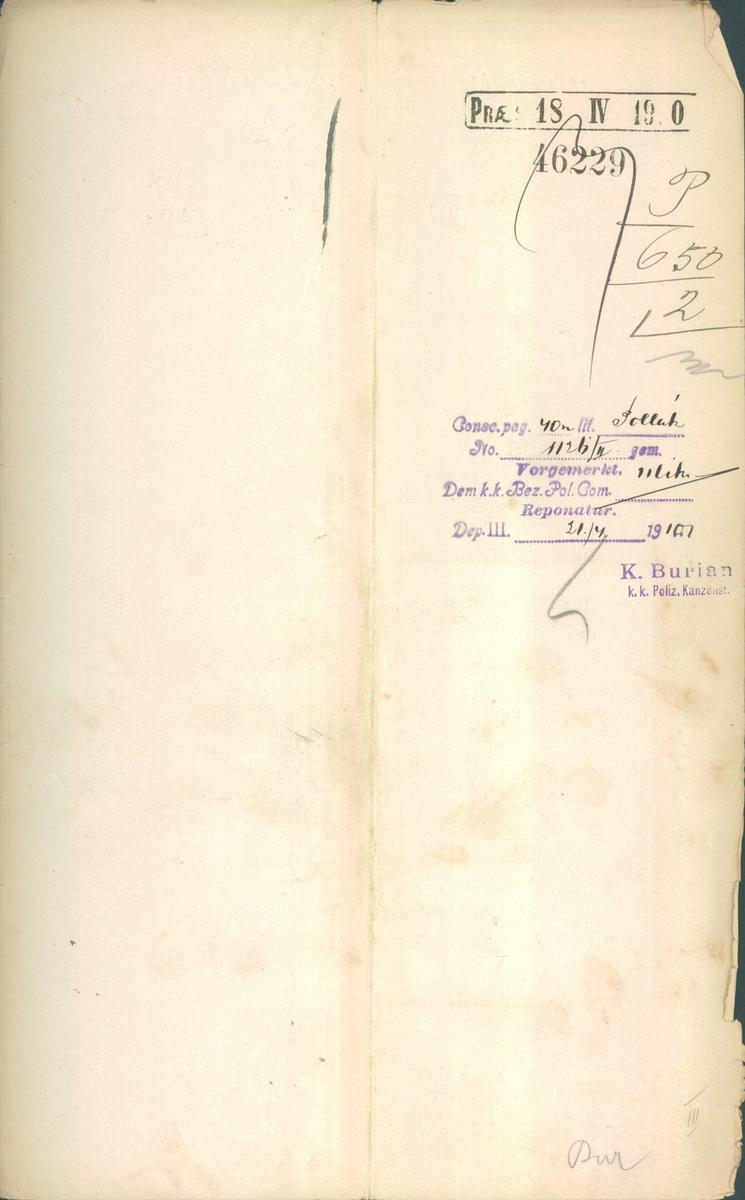 PRÆS 18 IV 19 0
46229
P
650
2
Consc. pag. 40n lit. Pollak
No. 1126/II gem.
Vorgemerkt.
Dem k.k. Bez. Pol. Com.
Reponatur.
Dep. III. 21/4 1910
K. Burian
k. k. Poliz. Kanzonst.
III